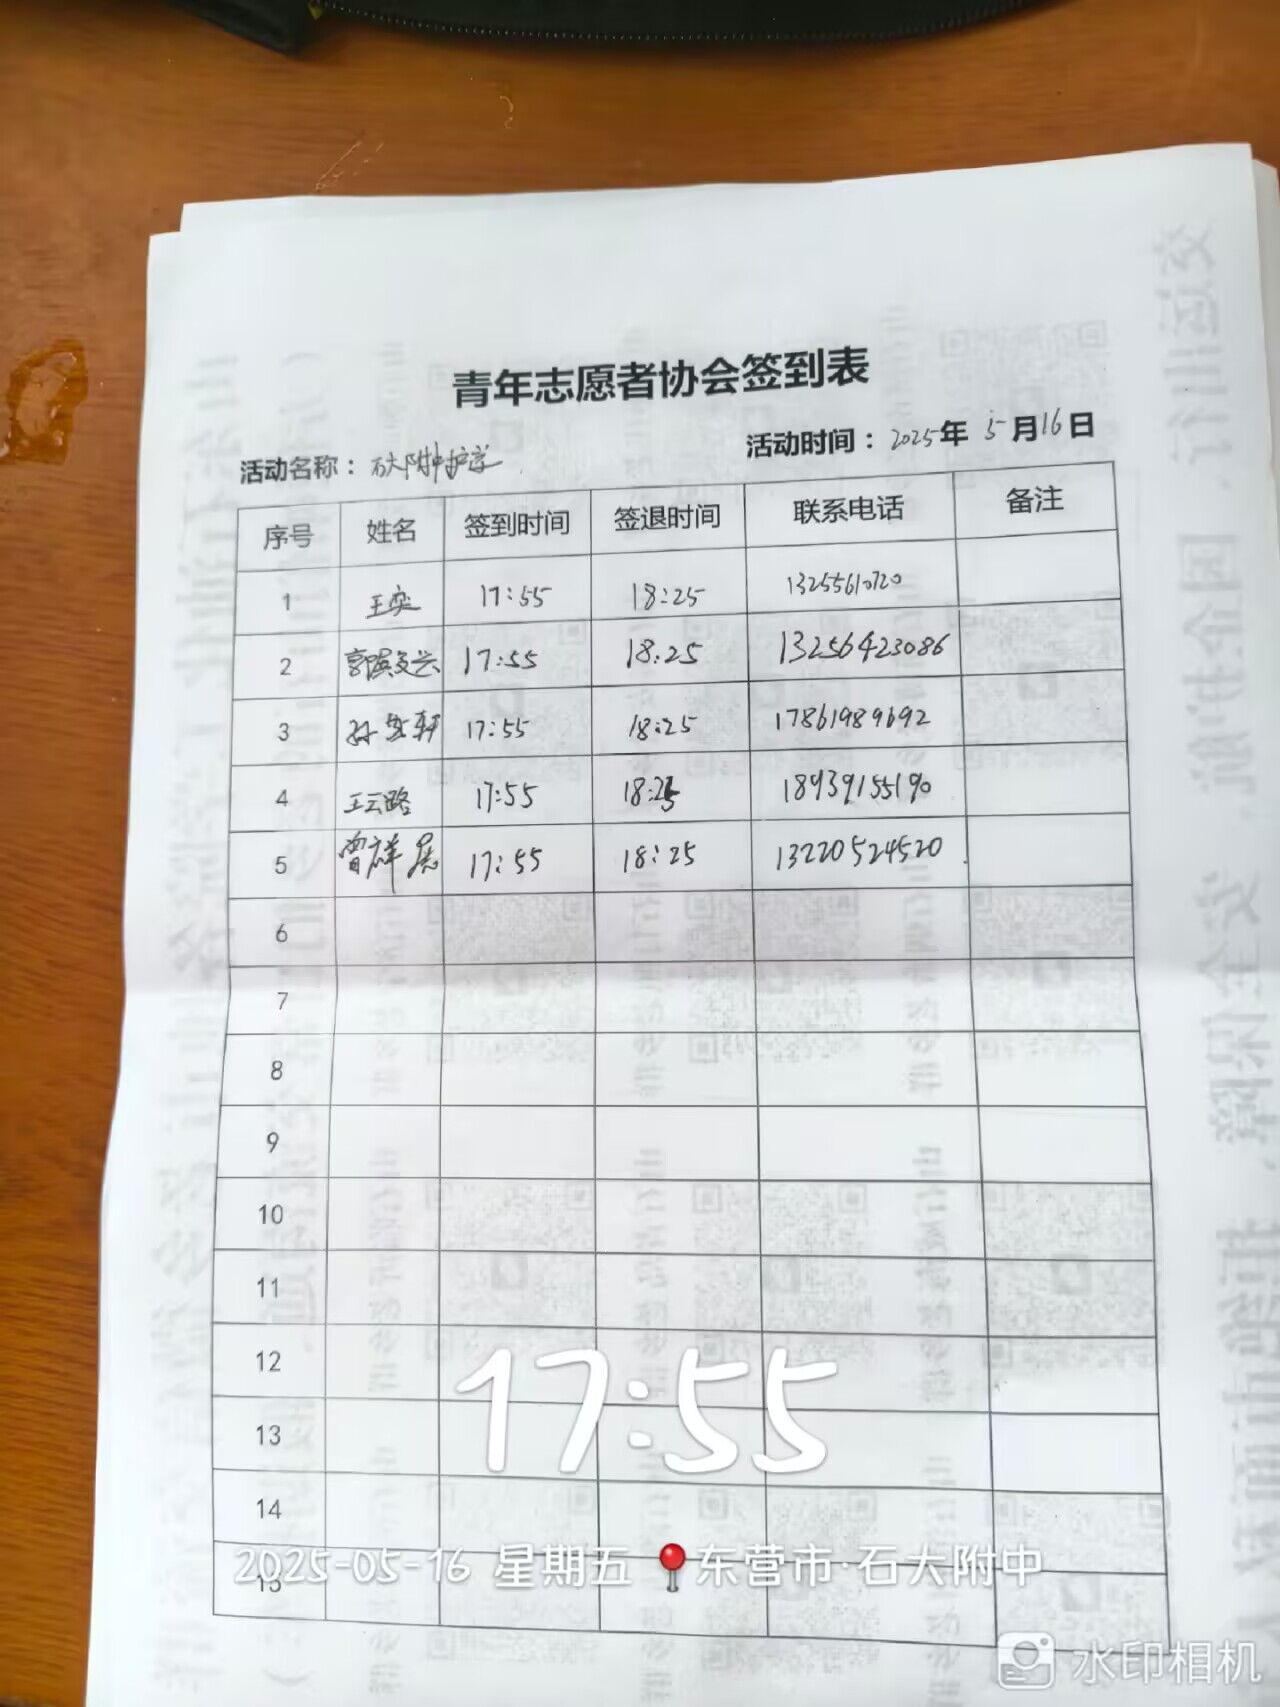 青年志愿者协会签到表
活动名称：石大附中护学 活动时间：2025年 5月16日
序号 姓名 签到时间 签退时间 联系电话 备注
1 王奕 17:55 18:25 13255610720
2 17:55 18:25 13256423086
3 17:55 18:25 17861989692
4 王云路 17:55 18:25 18939155190
5 曾祥展 17:55 18:25 13220524520
6
7
8
9
10
11
12
17:55
13
14
2025-05-16 星期五 东营市·石大附中
15
水印相机